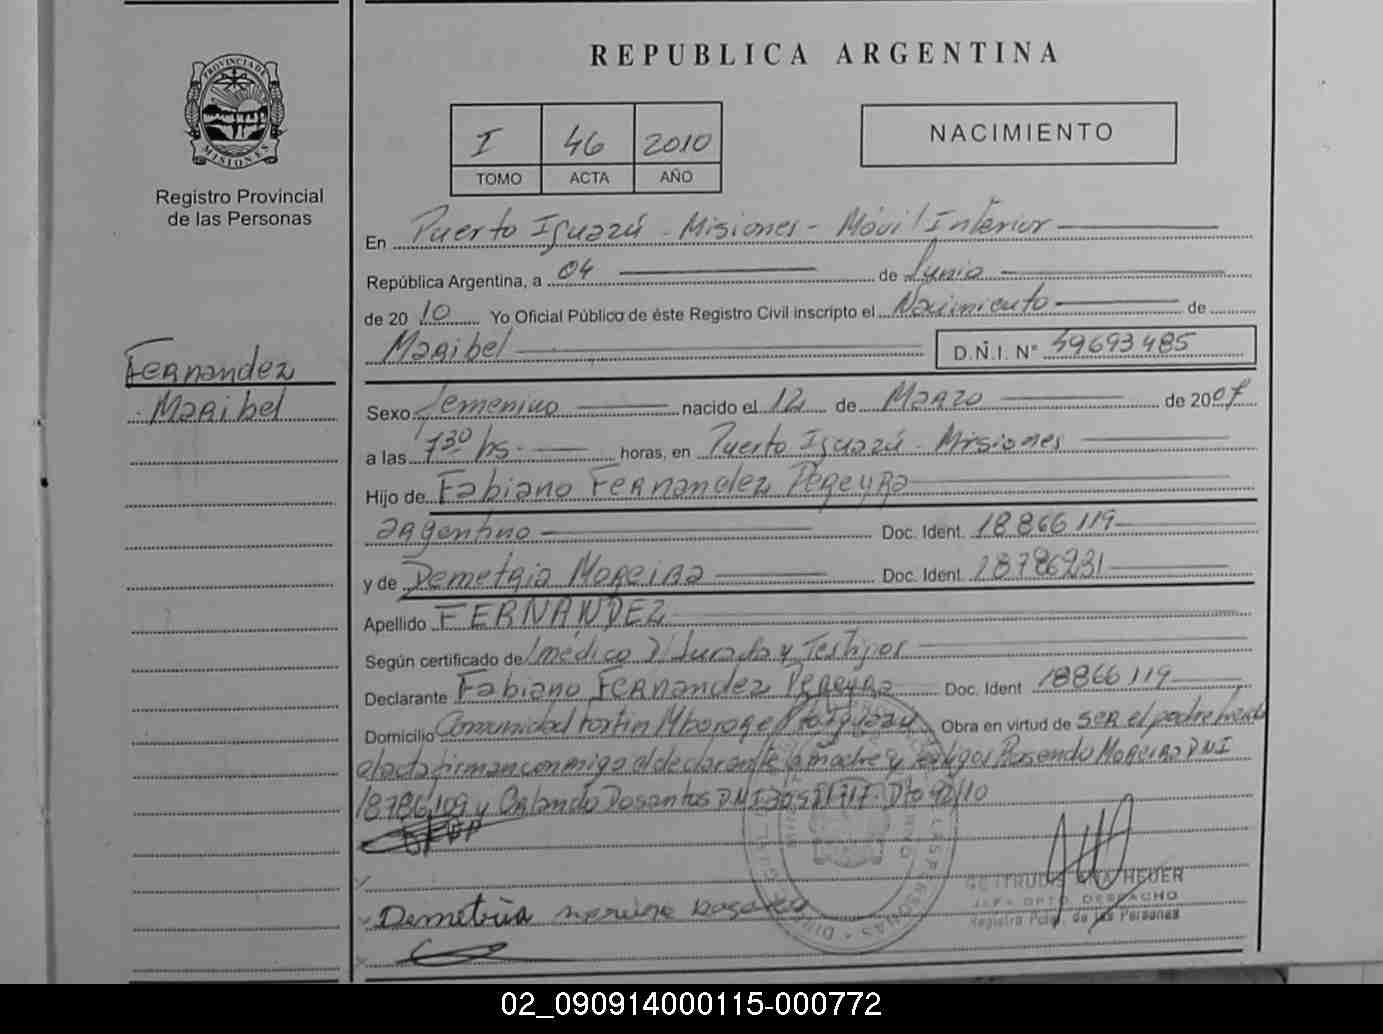 REPUBLICA ARGENTINA
PROVINCIA DE MISIONES
Registro Provincial
de las Personas
I 46 2010
TOMO ACTA AÑO
NACIMIENTO
En Puerto Iguazú - Misiones - Móvil Interior
República Argentina, a 04 de Junio
de 20 10 Yo Oficial Público de éste Registro Civil inscripto el Nacimiento de
Maribel D.N.I. N° 49693485
Fernandez
Maribel
Sexo femenino nacido el 12 de Marzo de 2007
a las 7 30 hs. horas, en Puerto Iguazú - Misiones
Hijo de Fabiano Fernandez Pereyra
argentino Doc. Ident. 18866119
y de Demetria Moreira Doc. Ident. 18786231
Apellido FERNANDEZ
Según certificado de médico D/Jurada y Testigos
Declarante Fabiano Fernandez Pereyra Doc. Ident 18866119
Domicilio Comunidad Fortin Mbororé Pto Iguazu Obra en virtud de ser el padre
el acta firman conmigo el declarante la madre y testigos Rosendo Moreira DNI
18786109 y Orlando Dosantos DNI Dto 92/10
Demetria
JEFA DPTO DESPACHO
Registro Pcial. de las Personas
02_090914000115-000772